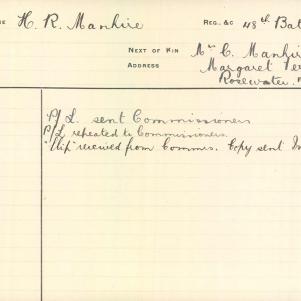 H. R. Manhire REG. &C 48th Bat
NEXT OF KIN Mr C. Manhi
ADDRESS Margaret Ter
Rosewater.
P/L. sent Commissioners
P/L repeated to Commissioners.
"Slip" received from Commrs. Copy sent